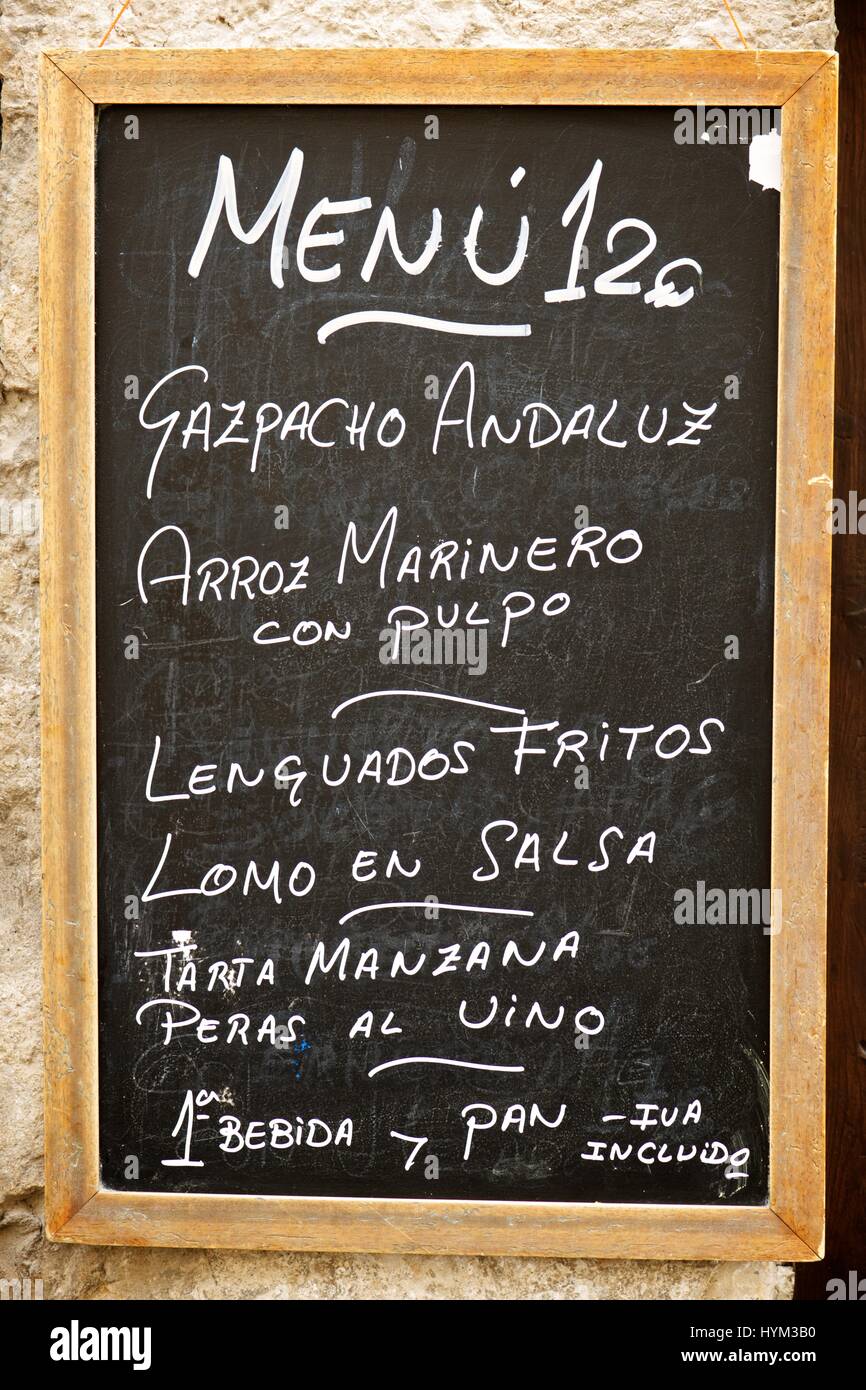 MENÚ 12€
GAZPACHO ANDALUZ
ARROZ MARINERO
CON PULPO
LENGUADOS FRITOS
LOMO EN SALSA
TARTA MANZANA
PERAS AL VINO
1ª BEBIDA Y PAN - IVA
INCLUIDO
alamy
Image ID: HYM3B0
www.alamy.com